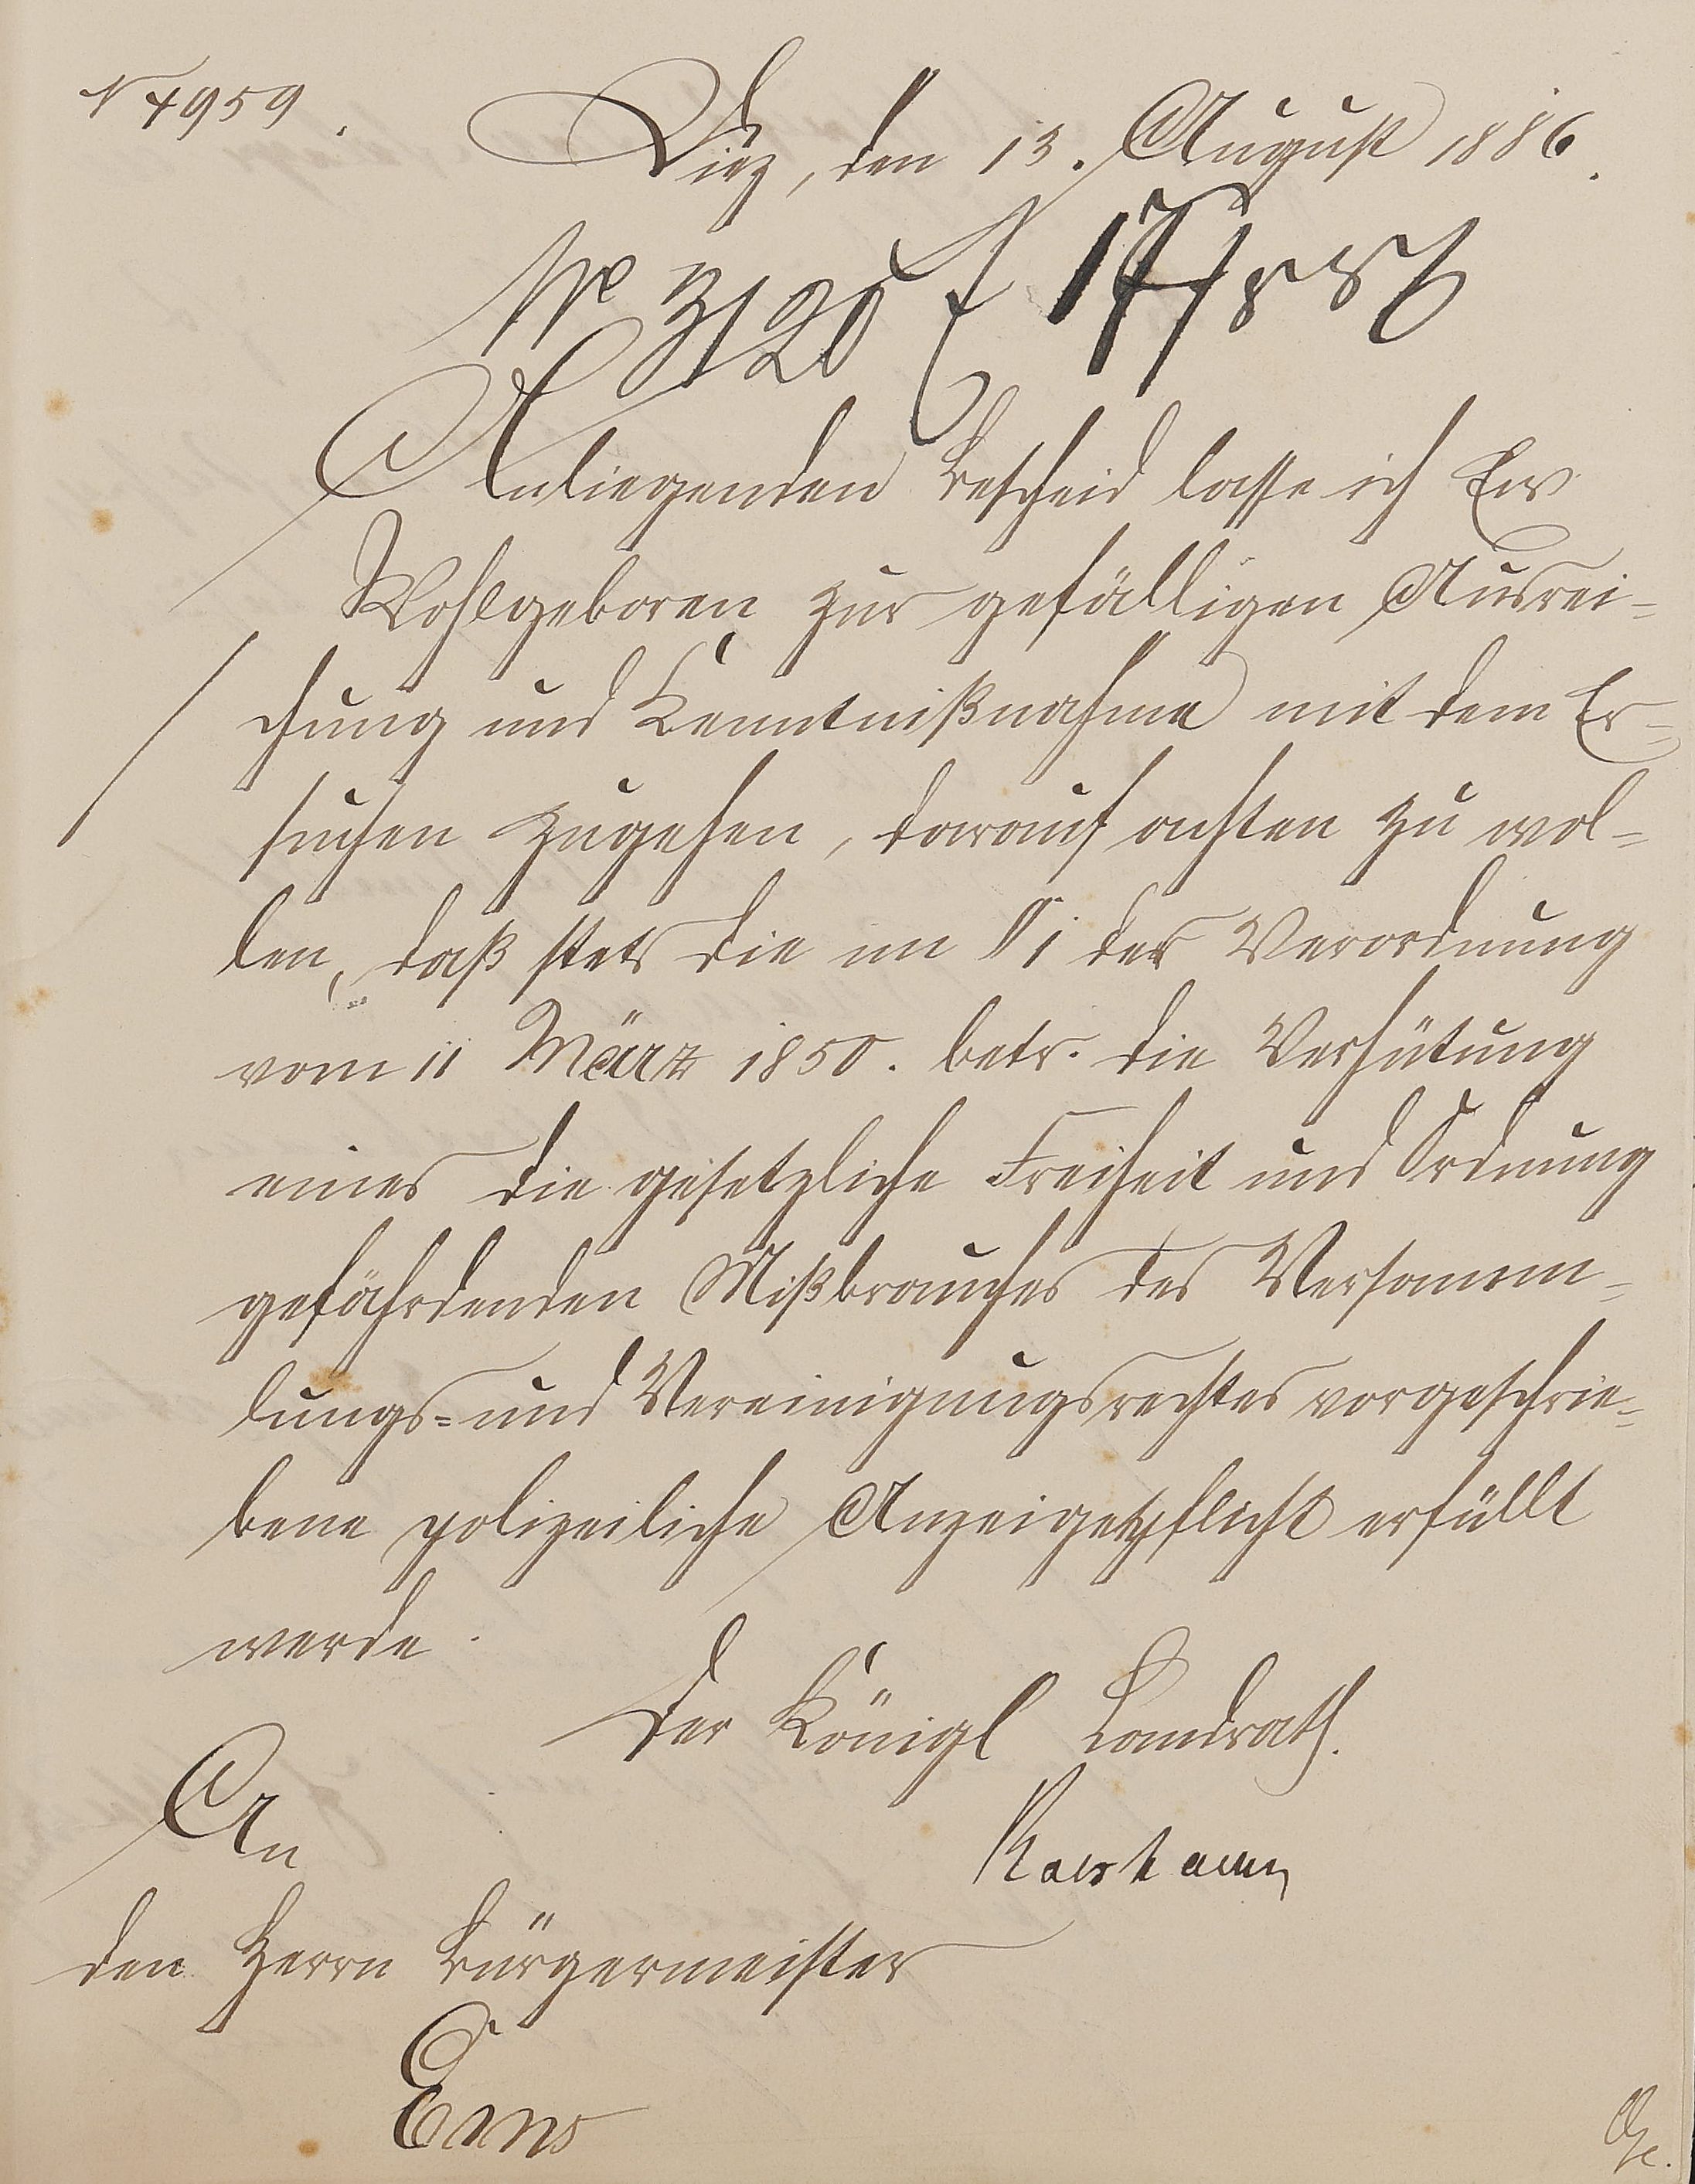 N 4959.
Diez, den 13. August 1886.
No 3120 E 17/8 86
Anliegenden Bescheid lasse ich Ew
Wohlgeboren zur gefälligen Ausrei-
chung und Kenntnißnahme mit dem Er-
suchen zugehen, darauf achten zu wol-
len, daß stets die im § 1 der Verordnung
vom 11 März 1850. betr. die Verhütung
eines die gesetzliche Freiheit und Ordnung
gefährdenden Mißbrauches des Versamm-
lungs- und Vereinigungsrechtes vorgeschrie-
bene polizeiliche Anzeigepflicht erfüllt
werde.
Der Königl Landrath.
An
den Herrn Bürgermeister
Ems